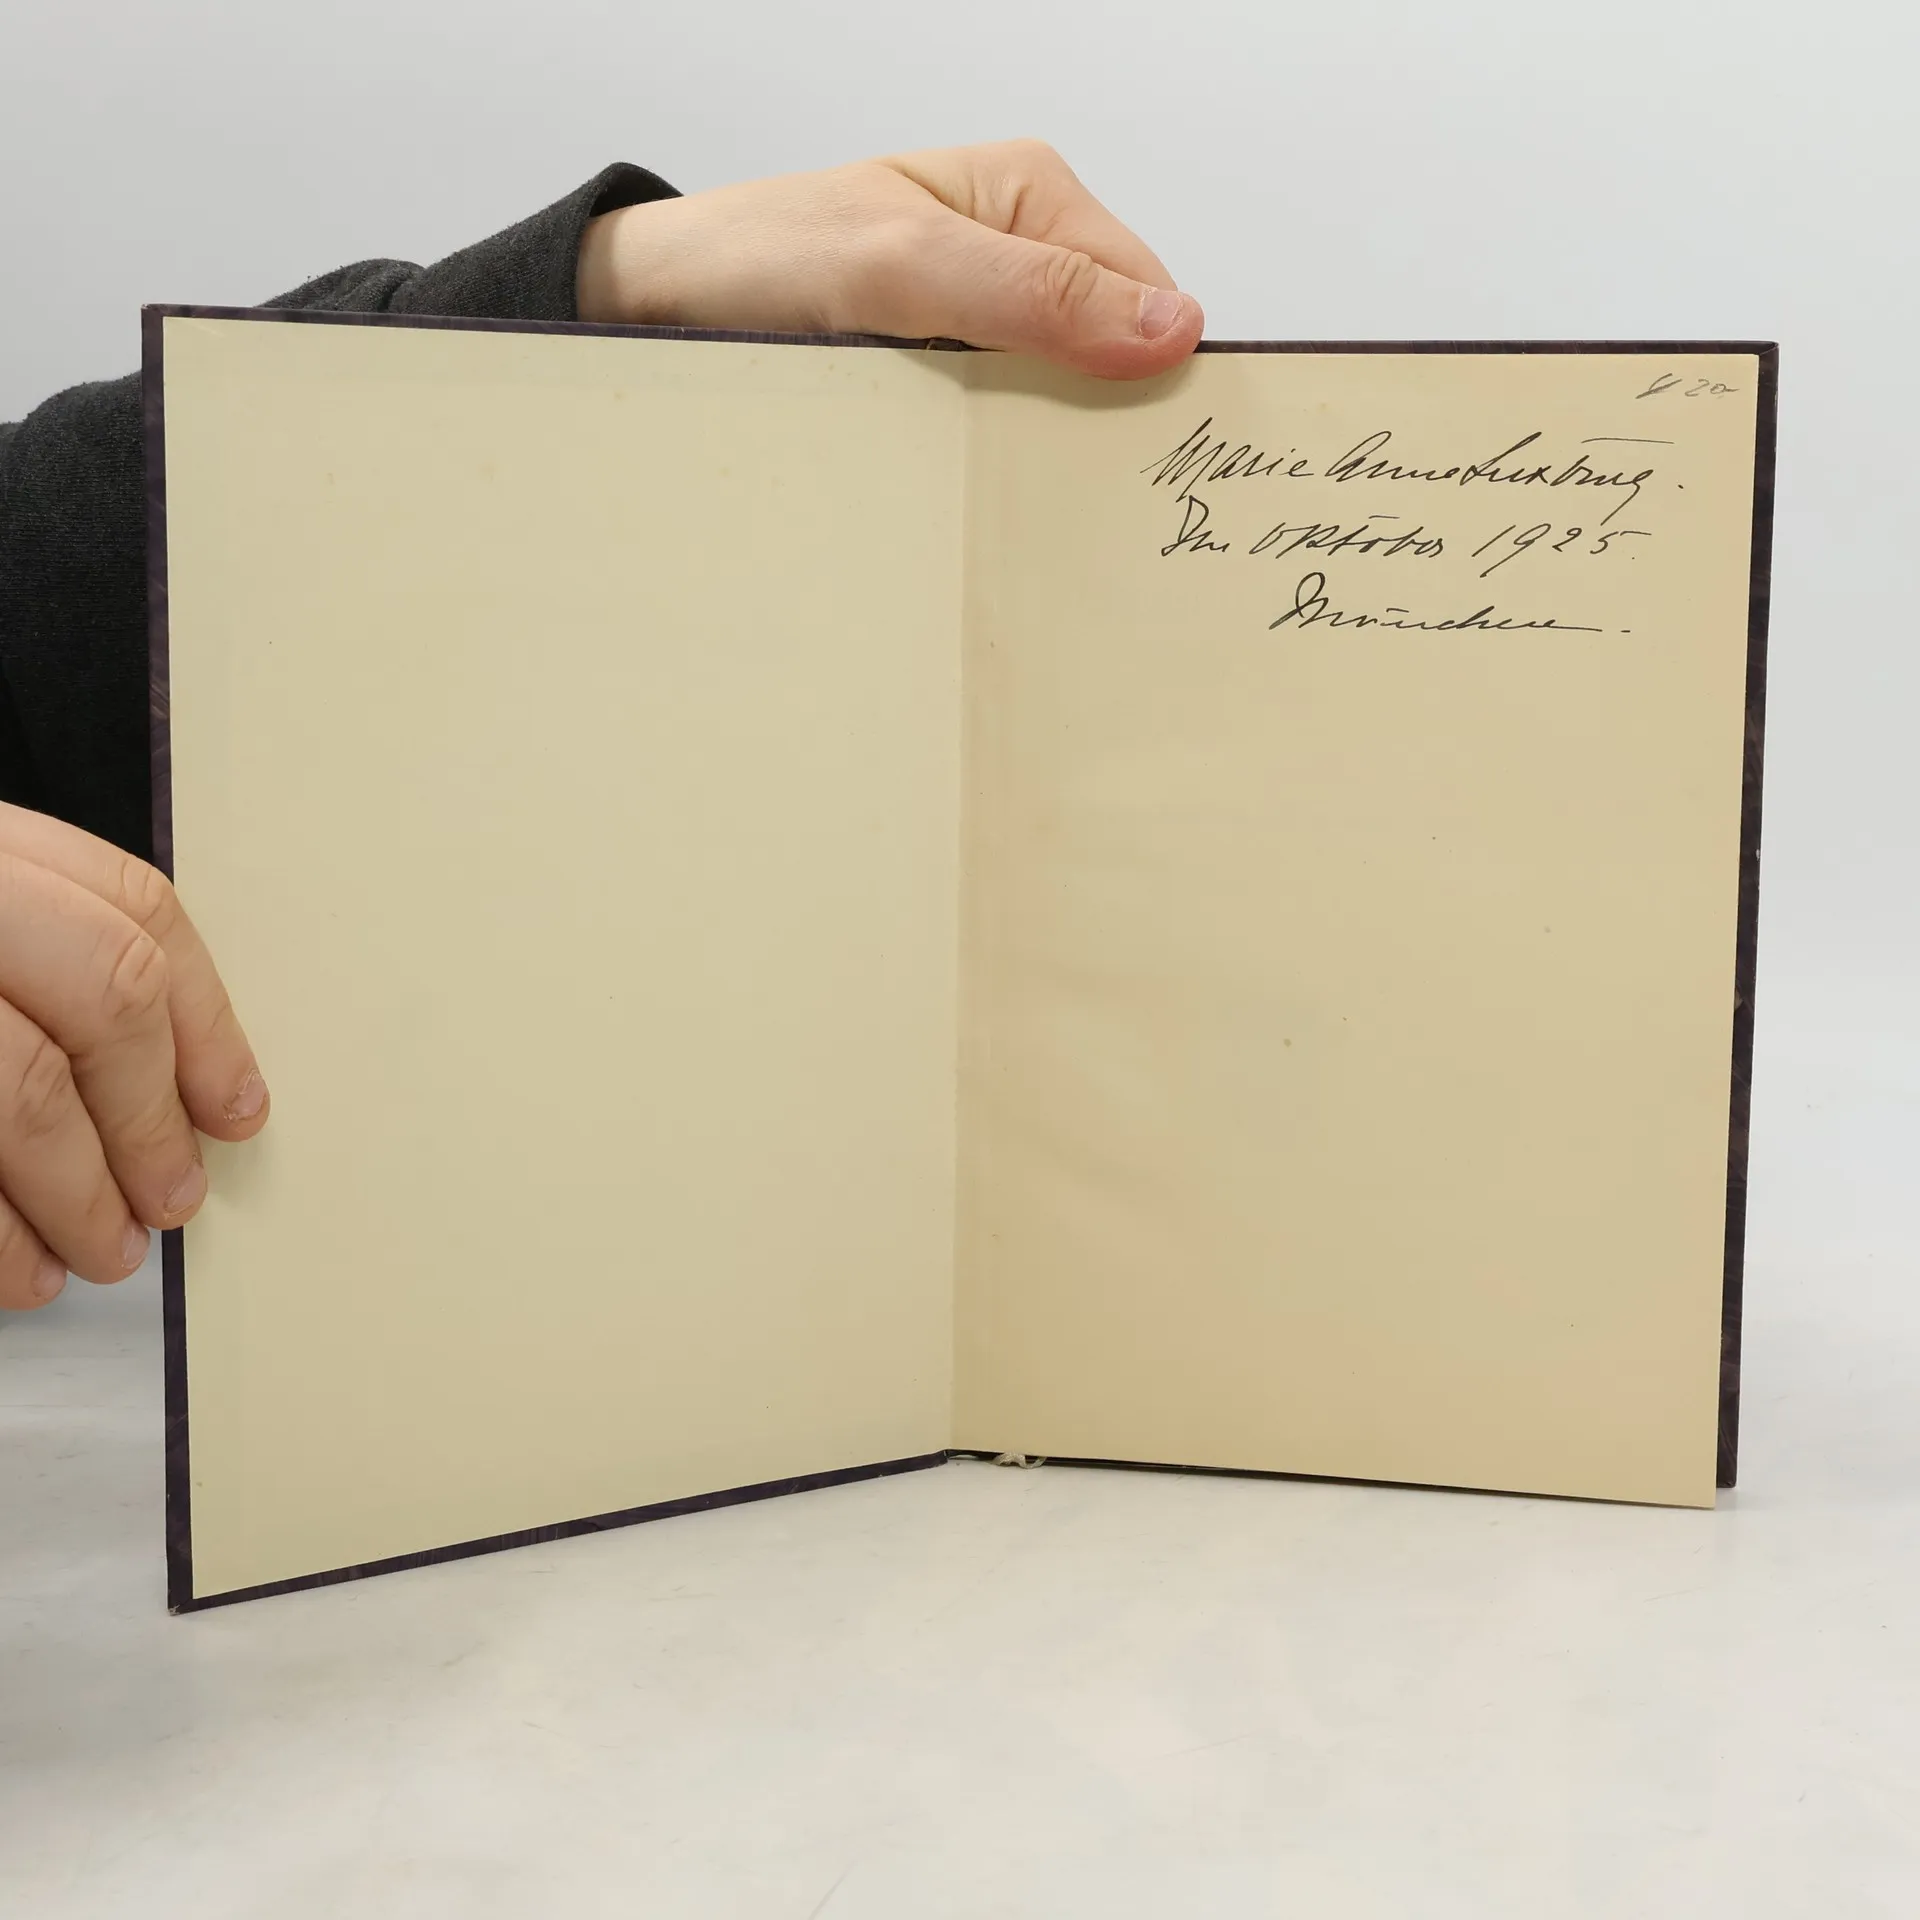 20.-
Marie Anne Luxburg.
Im Oktober 1925.
München.